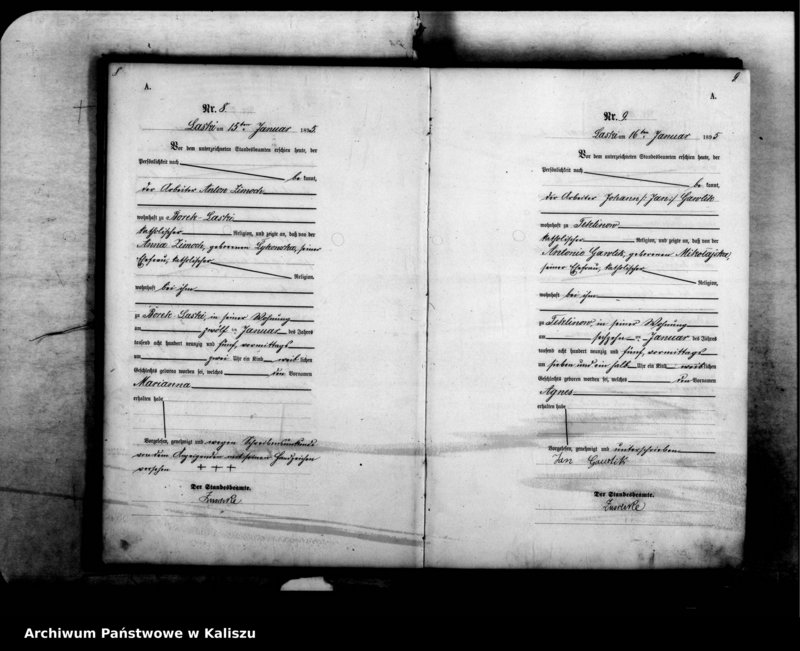 8
A.
Nr. 8.
Laski am 15ten Januar 1895.
Vor dem unterzeichneten Standesbeamten erschien heute, der
Persönlichkeit nach
be kannt,
der Arbeiter Anton Zimoch
wohnhaft zu Borek-Laski
katholischer Religion, und zeigte an, daß von der
Anna Zimoch, geborenen Lykowska, seiner
Ehefrau, katholischer
Religion,
wohnhaft bei ihm
zu Borek-Laski, in seiner Wohnung
am zwölf ten Januar des Jahres
tausend acht hundert neunzig und fünf, vormittags
um zwei Uhr ein Kind weib lichen
Geschlechts geboren worden sei, welches den Vornamen
Marianna
erhalten habe
Vorgelesen, genehmigt und wegen Schreibensunkunde
von dem Anzeigenden mit seinem Handzeichen
versehen + + +
Der Standesbeamte.
9
A.
Nr. 9.
Laski am 16ten Januar 1895
Vor dem unterzeichneten Standesbeamten erschien heute, der
Persönlichkeit nach
be kannt,
der Arbeiter Johann /: Jan :/ Gawlik
wohnhaft zu Teklinow
katholischer Religion, und zeigte an, daß von der
Antonie Gawlik, geborenen Mikołajska,
seiner Ehefrau, katholischer
Religion,
wohnhaft bei ihm
zu Teklinow, in seiner Wohnung
am sechzehn ten Januar des Jahres
tausend acht hundert neunzig und fünf, vormittags
um sieben und ein halb Uhr ein Kind weib lichen
Geschlechts geboren worden sei, welches den Vornamen
Agnes
erhalten habe
Vorgelesen, genehmigt und unterschrieben
Jan Gawlik
Der Standesbeamte.
Archiwum Państwowe w Kaliszu